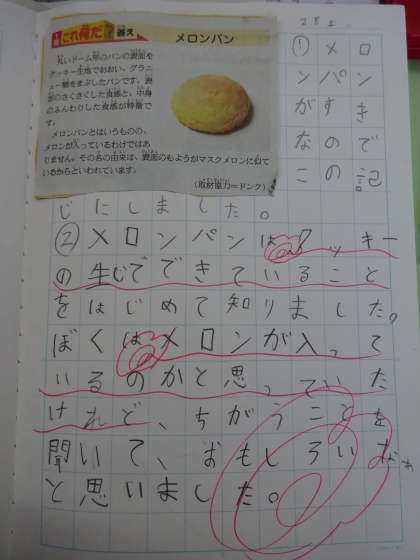 これ何だ? 答え
メロンパン
丸いドーム形のパンの表面を
クッキー生地でおおい、グラニ
ュー糖をまぶしたパンです。表
面のさくさくした食感と、中身
のふんわりした食感が特徴で
す。
メロンパンとはいうものの、
メロンが入っているわけではあ
りません。その名の由来は、表面のもようがマスクメロンに似て
いるからといわれています。
(取材協力=ドンク)
①メロ
ンパン
がすき
なので
この記
じにしました。
②メロンパンはクッキー
の生じでできていること
をはじめて知りました。
ぼくはメロンが入って
いるのかと思っていた
けれど、ちがうことを
聞いて、おもしろいなぁ
と思いました。